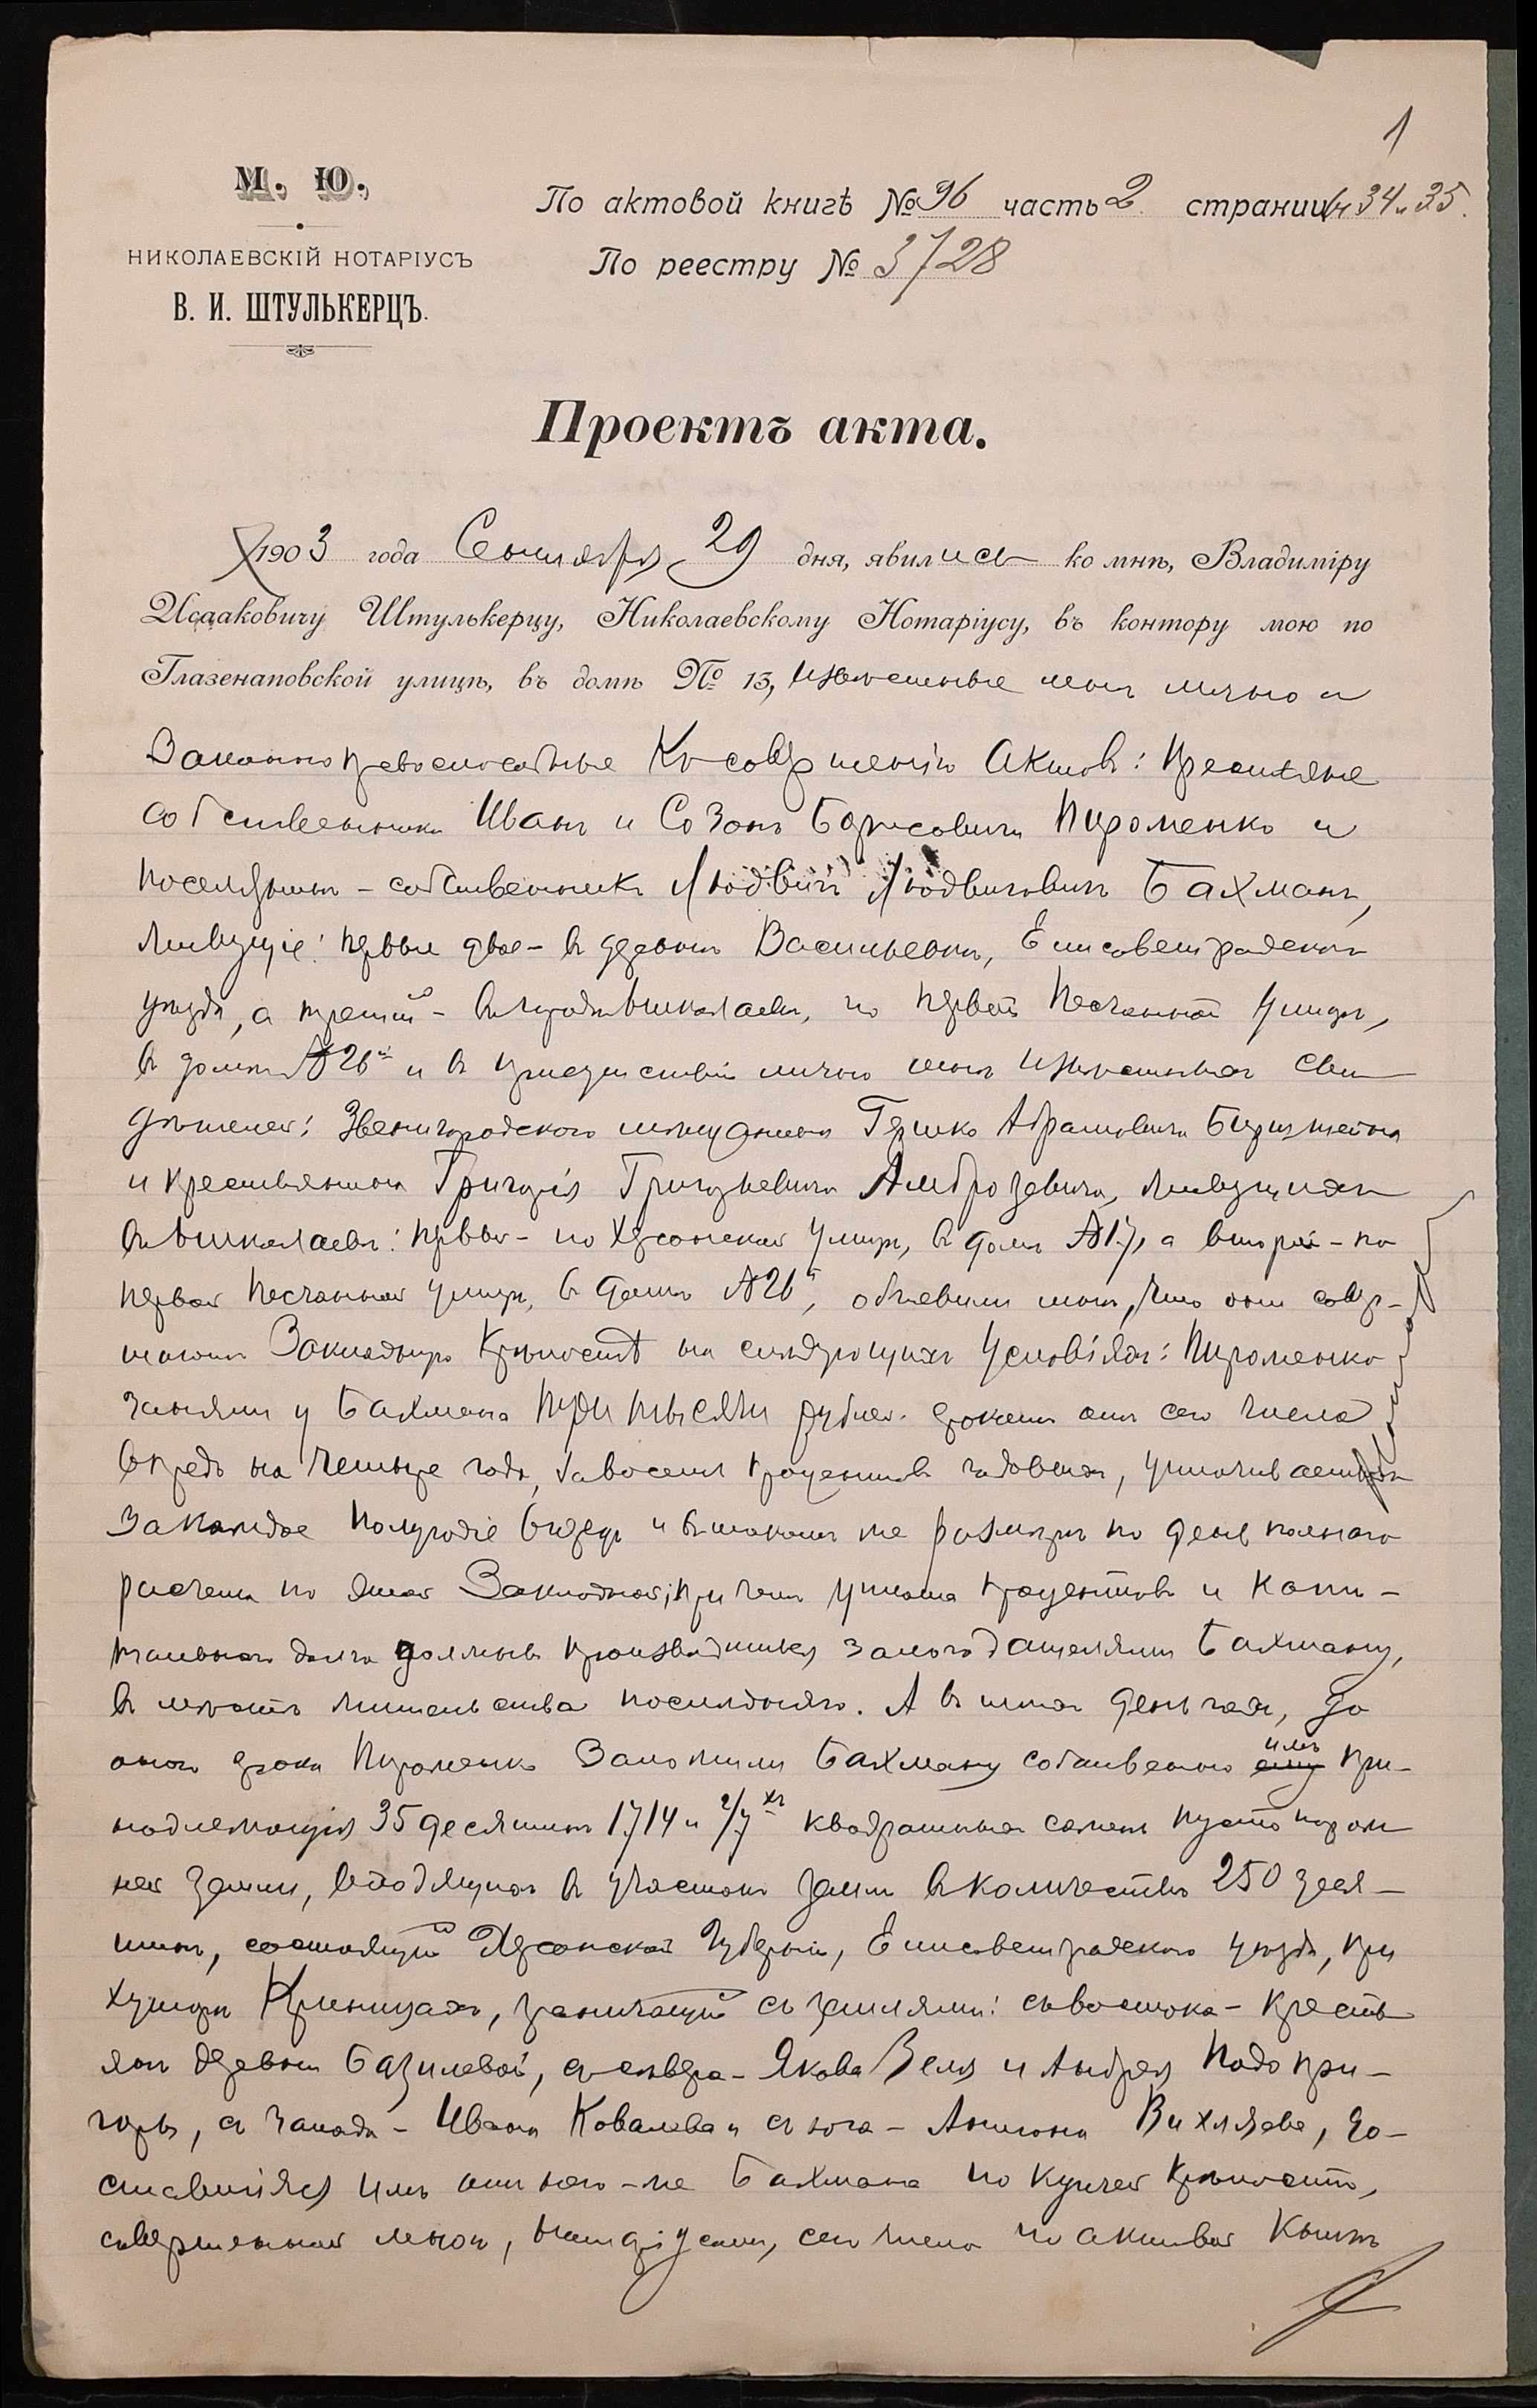 1
М. Ю.
По актовой книгѣ № 96 часть 2 страницы 34 и 35.
НИКОЛАЕВСКІЙ НОТАРІУСЪ
По реестру № 3728
В. И. ШТУЛЬКЕРЦЪ.
Проектъ акта.
1903 года Сентября 29 дня, явились ко мнѣ, Владиміру
Исааковичу Штулькерцу, Николаевскому Нотаріусу, въ контору мою по
Глазенаповской улицѣ, въ домѣ № 13, извѣстные мнѣ лично и
законноправоспособные къ совершенію актовъ: крестьяне
собственники Иванъ и Созонъ Борисовичи Пироменко и
поселянинъ-собственникъ Людвигъ Людвиговичъ Бахманъ,
живущіе: первые двое - въ деревнѣ Васильевкѣ, Елисаветградскаго
уѣзда, а третій - въ городѣ Николаевѣ, по первой Песчанной улицѣ,
въ домѣ № 26й и въ присутствіи лично мнѣ извѣстныхъ сви
дѣтелей: Звенигородского мѣщанина Гершко Абрамовича
и крестьянина Григорія Григорьевича Амброзевича, живущихъ
въ Николаевѣ: первый - по Херсонской улицѣ, въ домѣ № 17, а второй - по
первой Песчанной улицѣ, въ домѣ № 26й, объявили мнѣ, что они совер-
шаютъ закладную крѣпость на слѣдующихъ условіяхъ: Пироменко
заняли у Бахмана три тысячи рублей срокомъ отъ сего числа
впредь на четыре года, за восемь процентовъ годовыхъ, уплачиваемыхъ
за каждое полугодіе впередъ и въ такомъ же размѣрѣ по день полнаго
расчета по этой закладной; при чемъ уплата процентовъ и капи-
тальнаго долга должны производиться залогодателями Бахману,
въ мѣстѣ жительства послѣдняго. А въ тѣхъ деньгахъ, до
онаго срока Пироменко заложили Бахману собственно ему имъ при-
надлежащія 35 десятинъ 1714 и 2/7хъ квадратныхъ сажень пустопорож
ней земли, входящихъ въ участокъ земли въ количествѣ 250 деся-
тинъ, состоящій Херсонской Губерніи, Елисаветградскаго уѣзда, при
хуторѣ Криницахъ, граничащій съ землями: съ востока - кресть
янъ деревни Базилевой, съ сѣвера - Якова Зеля и Андрея Подопри-
горы, съ запада - Ивана Ковалева и съ юга - Антона Вихляева, до-
ставшіяся имъ отъ него-же Бахмана по купчей крѣпости,
совершенной мною, Нотаріусомъ, сего числа по актовой книгѣ